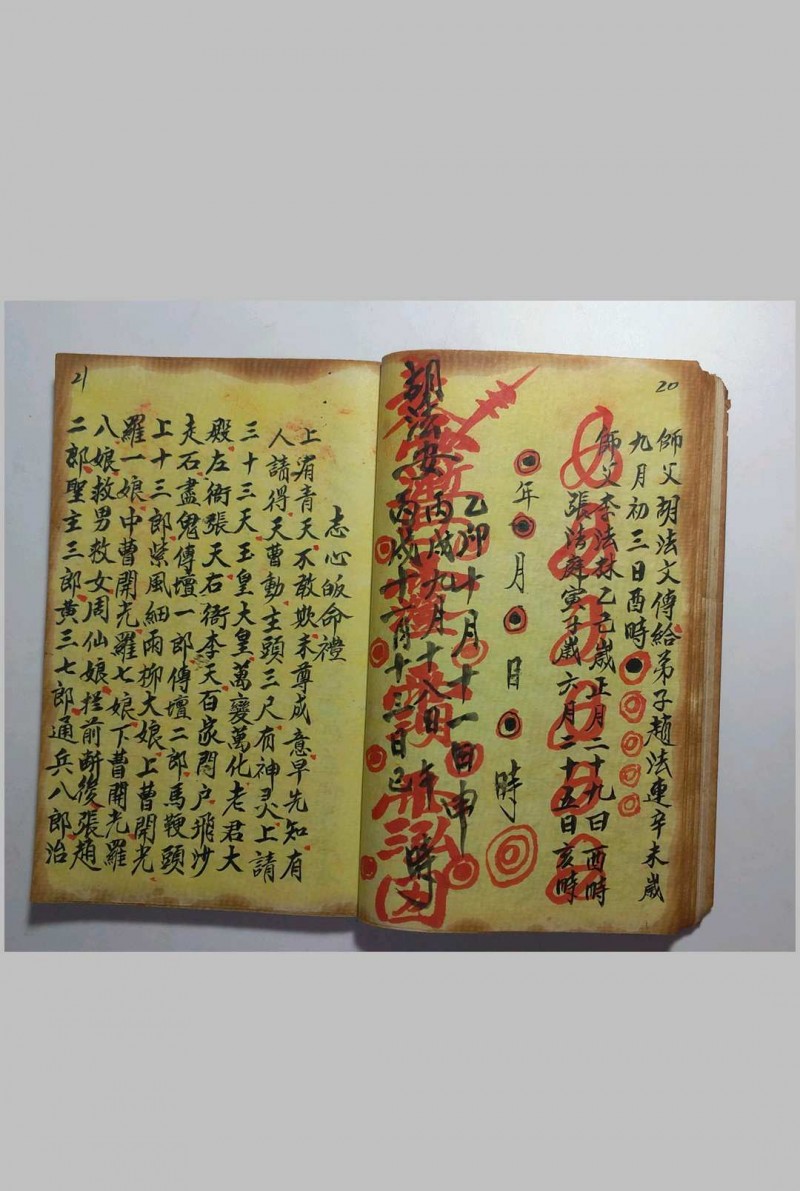 20
師父胡法文傳給弟子趙法連辛未歲
九月初三日酉時
師父李法林乙巳歲正月二十九日酉時
張法
寅
歲六月二十五日亥時
年
月
日
時
乙卯十月十一日申
丙戌九月十八日午時
胡法安丙戌十
月十三日巳
21
志心皈命禮
上有青天不敢欺未尊成意早先知有
人請得天曹動主頭三尺有神灵上請
三十三天王皇大皇萬變萬化老君大
殿左衙張天右衙李天百家門户飛沙
走石盡鬼傳壇一郎傳壇二郎馬鞭頭
上十三郎紫風細雨柳大娘上曹開光
羅一娘中曹開光羅七娘下曹開光羅
八娘救男救女周仙娘拦前断後張趙
二郎聖主三郎黄三七郎通兵八郎治